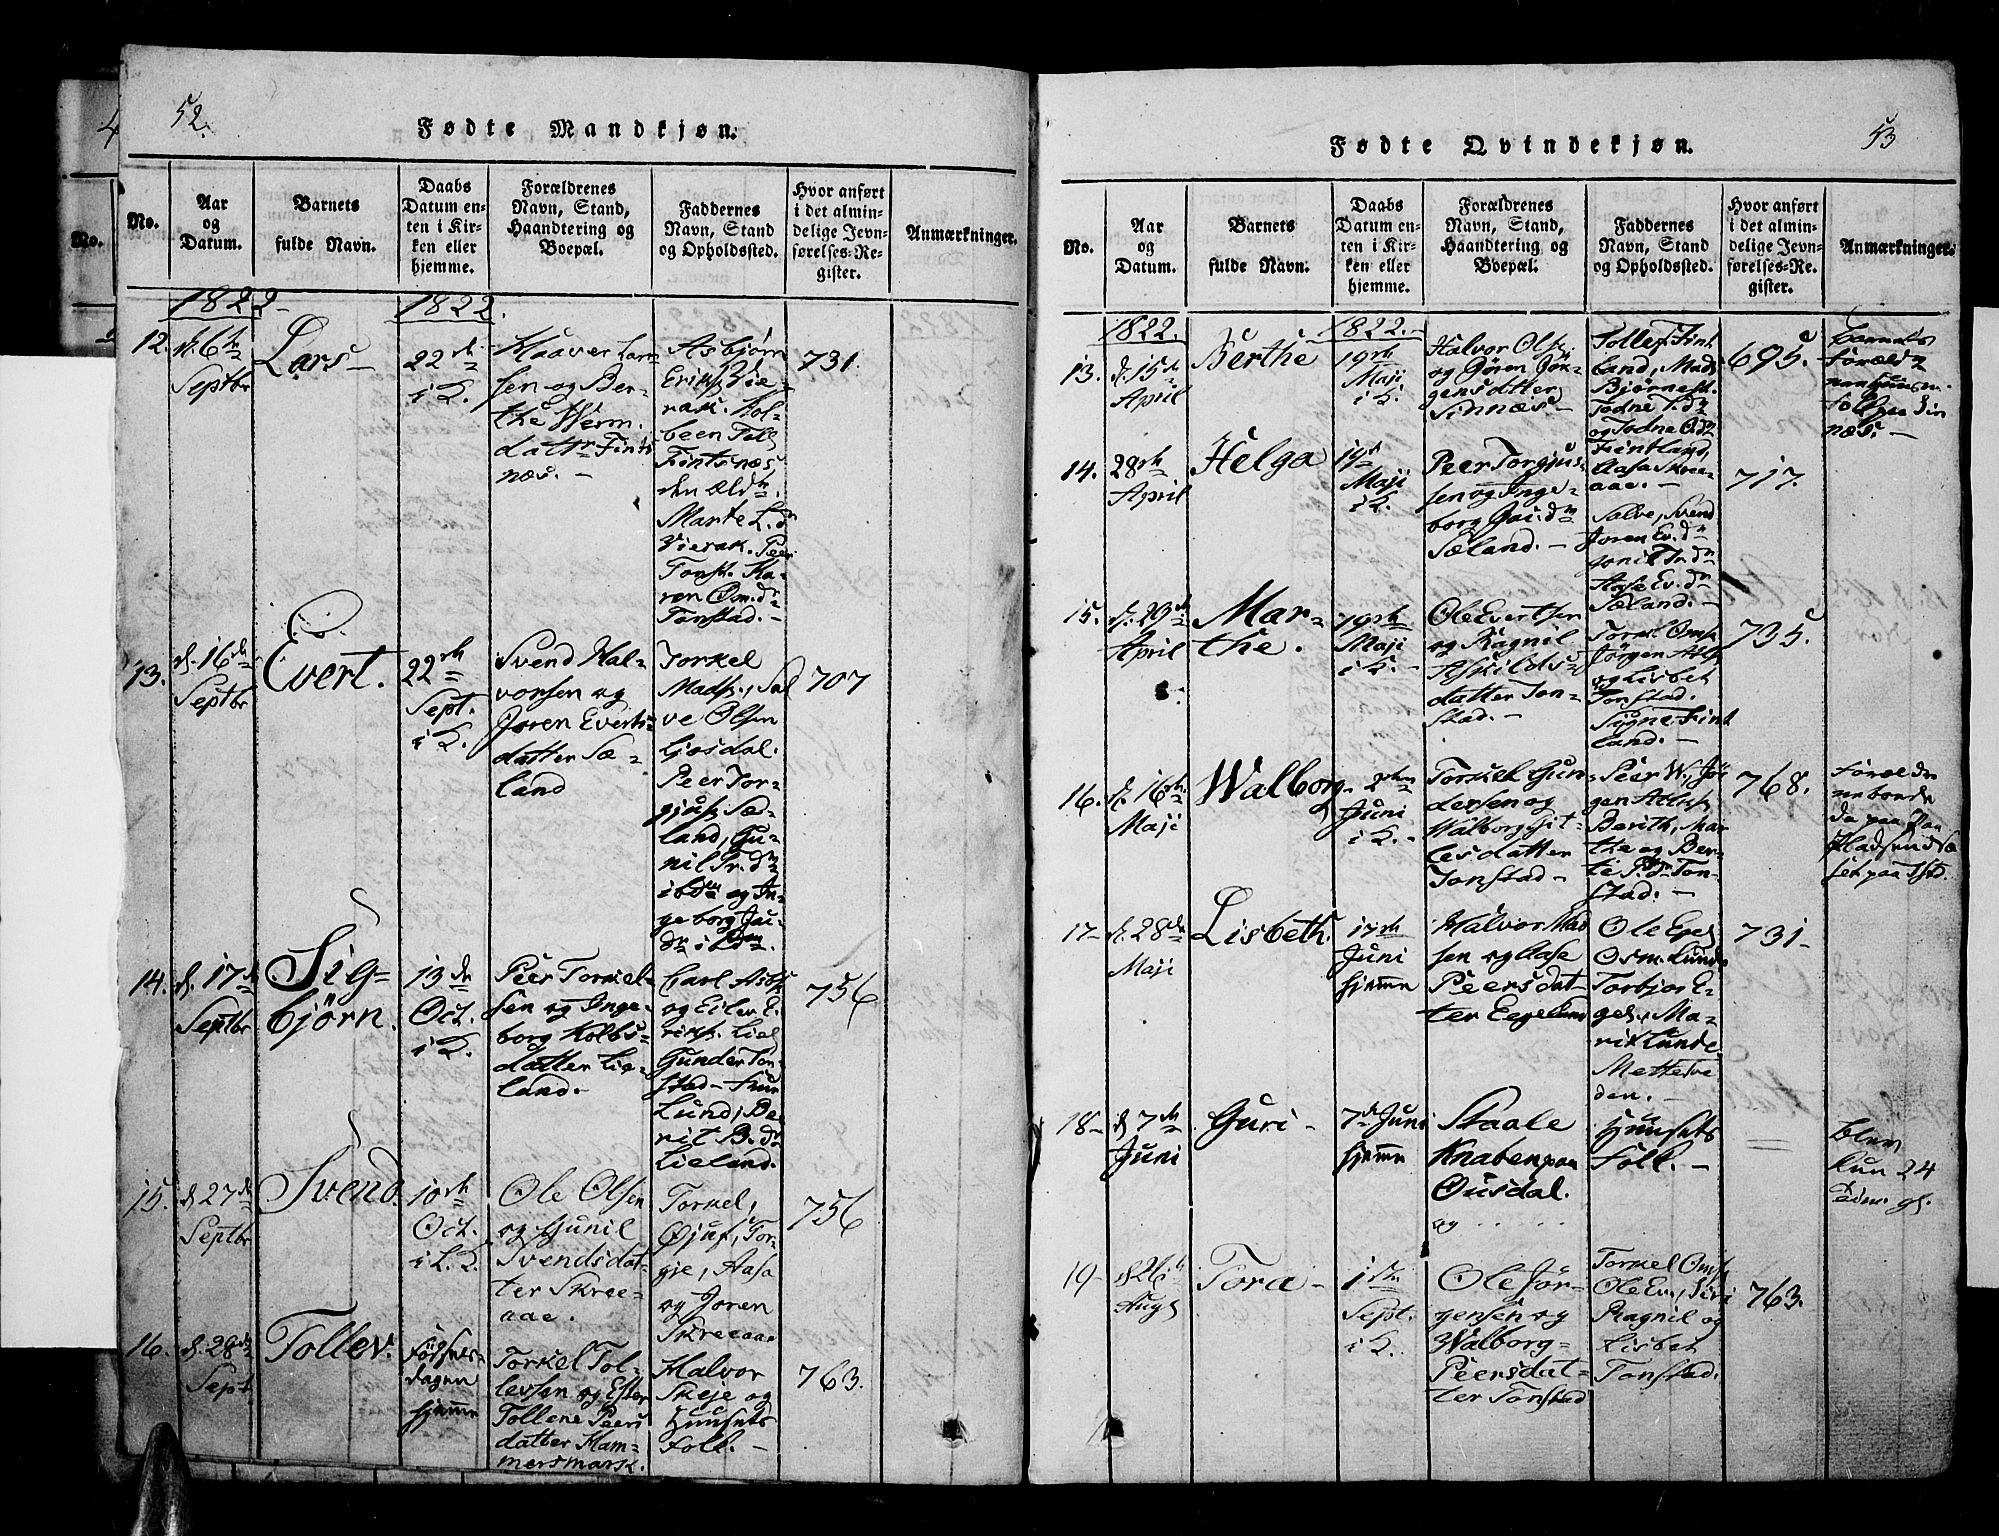 52.
Fødte Mandkjøn.
No.
Aar
og
Datum.
Barnets
fulde Navn.
Daabs
Datum en-
ten i Kir-
ken eller
hjemme.
Forældrenes
Navn, Stand,
Haandtering og
Boepæl.
Faddernes
Navn, Stand
og Opholdssted.
Hvor anført
i det almin-
delige Jevn-
førelses-Re-
gister.
Anmærkninger.
1822
1822.
12.
d. 6te
Septbr
Lars
22de
i K.
Haaver Lar-
sen og Ber-
the Werm.
dattr Fints
næs.
Asbjørn
Eriks.
Fintsnæs,
den ældr.
Marte L. dr
Vierak. Peer
Tonst. Ka-
ren Osm. dr
Tonstad.
731.
13.
d. 16de
Septbr
Evert.
22de
Sept.
i K.
Svend Hal-
vorsen og
Joren Everts-
datter Sæ-
land
Torkel
Mads., Sal
ve Olsen
Gosdal.
Peer Tor-
gjuss. Sæ-
land, Gu-
nil Tr. dr
ibdm og In-
geborg Jai-
dr
707
14.
d. 17de
Septbr
Sig-
bjørn.
13de
Oct.
i K.
Peer Torkel-
sen og Inge-
borg Kolbs-
datter Lie-
land.
Carl Asbs.
og Eilev E-
riks. Liel
Gunder Ton-
stad
Lund, Be-
rit B. dr
Lieland.
756
15.
d. 27de
Septbr
Svend.
10de
Oct.
i K.
Ole Olsen
og Gunil
Svendsdat-
ter Skree-
aae.
Torkel,
Ojuf, Tor-
gje, Aasa
og Joren
Skreeaae
756
16.
d. 28de
Sept
Tollev.
hjemme
Torkel Tol-
levsen og
Tollene Peers
datter Ham-
mersmark.
Halvor
Skeje og
Huusets
Folk.
763.
53
Fødte Qvindekjøn.
No.
Aar
og
Datum.
Barnets
fulde Navn.
Daabs
Datum en-
ten i Kir-
ken eller
hjemme.
Forældrenes
Navn, Stand,
Haandtering og
Boepæl.
Faddernes
Navn, Stand
og Opholdssted.
Hvor anført
i det almin-
delige Jevn-
førelses-Re-
gister.
Anmærkninger.
1822.
1822.
13.
d. 15de
April
Berthe
19de
Maji
i K.
Halvor Ols.
og Jøren Jør-
gensdatter
Sinnæs
Tollef Fint
land, Mads
Bjørnest.
Todne T. dr
og Todne O. dr
Fintland,
Aasa Skree-
aae.
695.
14.
28de
April
Helga
19de
Maji
i K.
Peer Torgjus-
sen og Inge-
borg Jai. dr
Sæland.
Salve, Svend
Joren Ev. dr
Aase Ev. dr
Sæland.
717.
15.
d. 29de
April
Mar-
the.
19de
Maji
i K.
Ole Evertsen
og Ragnil
Askilds-
datter Ton-
stad.
Torkel Oms.
Jørgen Atls.
og Lisbet
Tonstad.
Signe Fint
land.
735.
16.
d. 16de
Maji
Walborg
2den
Juni
i K.
Torkel Gun-
dersen og
Walborg Git-
lesdatter
Tonstad
Peer W., Jør-
gen Atls.
Berith, Mar
the og Ber-
te P. dr Ton-
stad.
768.
17
d. 28de
Maji
Lisbeth.
17de
Juni
hjemme
Halvor Mad
sen og Aase
Peersdat-
ter Eegeland
Ole Egel
Osm. Lunde
Torbjor E-
gel., Ma-
rit Lunde
Mette
den.
731
18
d 7de
Juni
Guri
7de Juni
hjemme
Staale
Knaben paa
Ousdal.
og
Huusets
Folk.
Blev
kun 24
19
d 26
Augs
Tora
1ste
Sept.
i K.
Ole Jør-
gensen og
Walborg
Peersdat-
ter Tonstad
Torkel Oms.
Ole Ev., Siri
Ragnil og
Lisbet
Tonstad.
763.